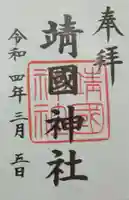 奉拝
靖國神社
令和四年三月五日
靖國神社